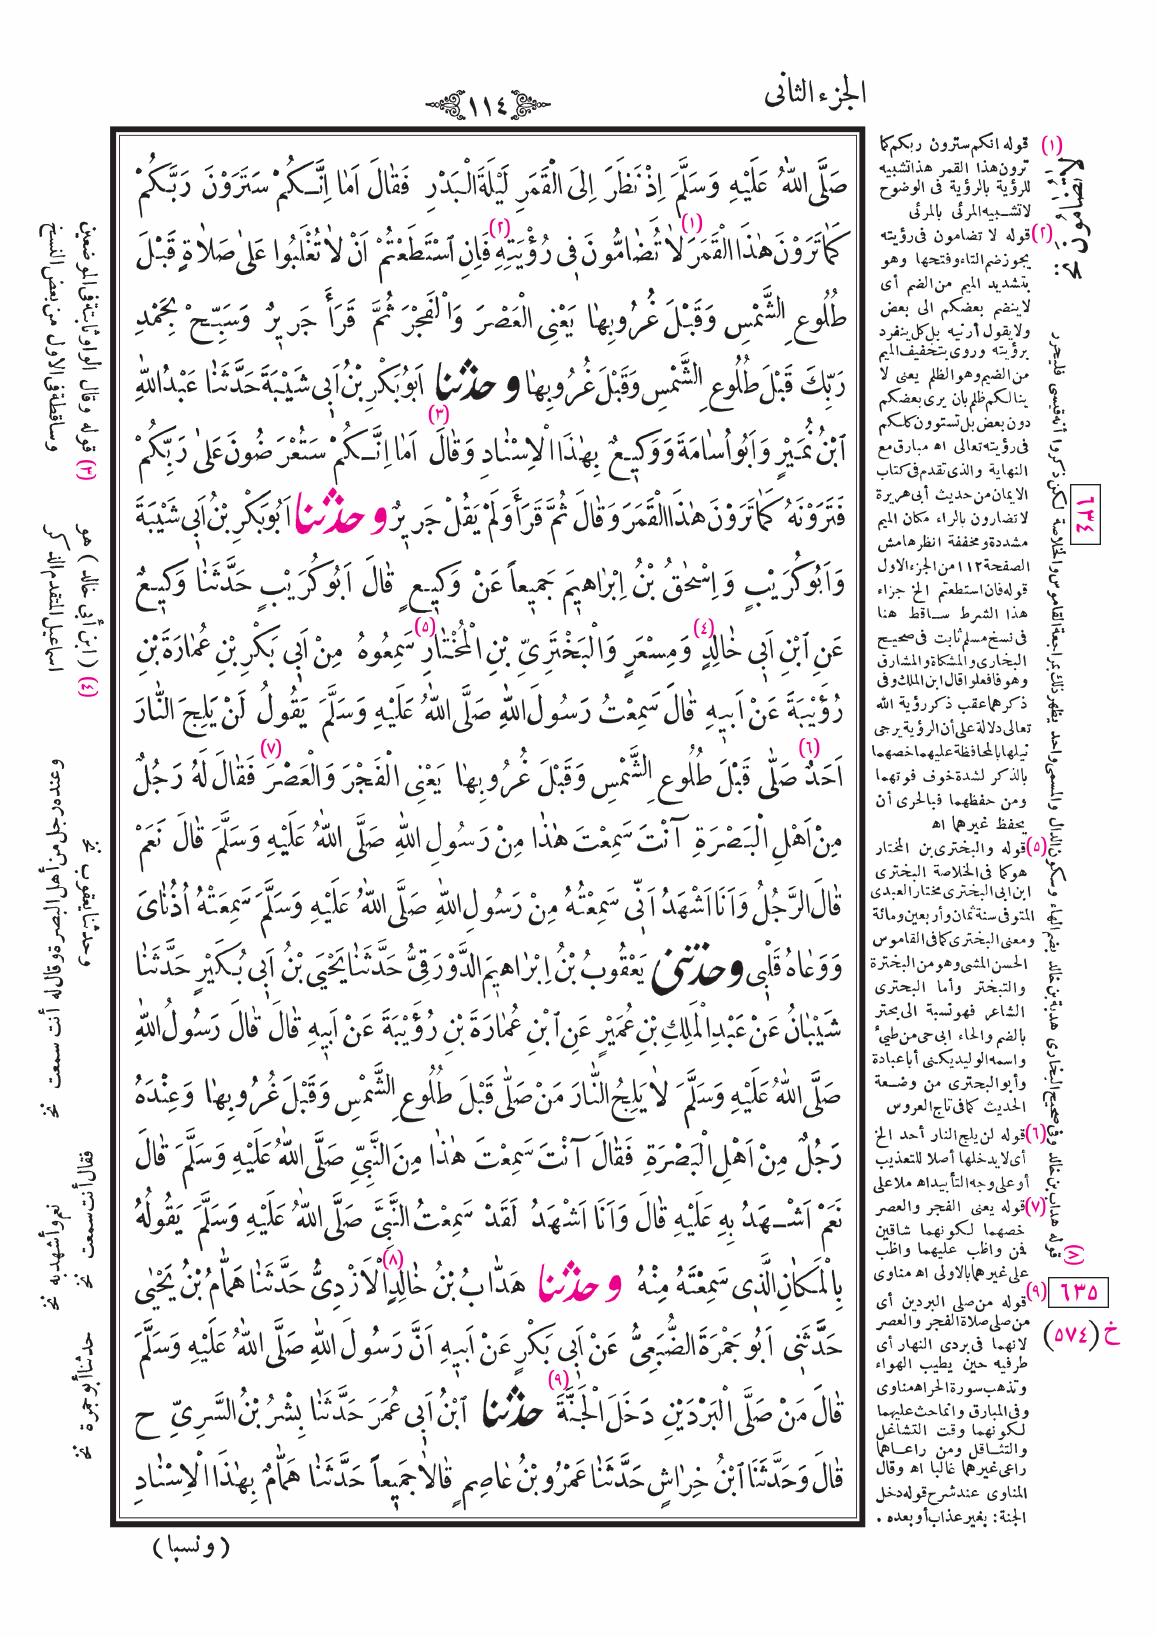 الجزء الثانى
١١٤
صَلَّى اللهُ عَلَيْهِ وَسَلَّمَ اِذْ نَظَرَ اِلَى الْقَمَرِ لَيْلَةَ الْبَدْرِ فَقَالَ اَمَا اِنَّكُمْ سَتَرَوْنَ رَبَّكُمْ
كَمَا تَرَوْنَ هٰذَا الْقَمَرَ (١) لَا تُضَامُّونَ فِى رُؤْيَتِهِ (٢) فَاِنِ اسْتَطَعْتُمْ اَنْ لَا تُغْلَبُوا عَلَى صَلَاةٍ قَبْلَ
طُلُوعِ الشَّمْسِ وَقَبْلَ غُرُوبِهَا يَعْنِى الْعَصْرَ وَالْفَجْرَ ثُمَّ قَرَأَ جَرِيرٌ وَسَبِّحْ بِحَمْدِ
رَبِّكَ قَبْلَ طُلُوعِ الشَّمْسِ وَقَبْلَ غُرُوبِهَا وحدثنا اَبُو بَكْرِ بْنُ اَبِى شَيْبَةَ حَدَّثَنَا عَبْدُ اللهِ
ابْنُ نُمَيْرٍ وَاَبُو اُسَامَةَ وَوَكِيعٌ بِهٰذَا الْاِسْنَادِ وَقَالَ (٣) اَمَا اِنَّكُمْ سَتُعْرَضُونَ عَلَى رَبِّكُمْ
فَتَرَوْنَهُ كَمَا تَرَوْنَ هٰذَا الْقَمَرَ وَقَالَ ثُمَّ قَرَأَ وَلَمْ يَقُلْ جَرِيرٌ وحدثنا اَبُو بَكْرِ بْنُ اَبِى شَيْبَةَ
وَاَبُو كُرَيْبٍ وَاِسْحٰقُ بْنُ اِبْرَاهِيمَ جَمِيعاً عَنْ وَكِيعٍ قَالَ اَبُو كُرَيْبٍ حَدَّثَنَا وَكِيعٌ
عَنِ ابْنِ اَبِى خَالِدٍ (٤) وَمِسْعَرٍ وَالْبَخْتَرِىِّ بْنِ الْمُخْتَارِ (٥) سَمِعُوهُ مِنْ اَبِى بَكْرِ بْنِ عُمَارَةَ بْنِ
رُؤَيْبَةَ عَنْ اَبِيهِ قَالَ سَمِعْتُ رَسُولَ اللهِ صَلَّى اللهُ عَلَيْهِ وَسَلَّمَ يَقُولُ لَنْ يَلِجَ النَّارَ
اَحَدٌ (٦) صَلَّى قَبْلَ طُلُوعِ الشَّمْسِ وَقَبْلَ غُرُوبِهَا يَعْنِى الْفَجْرَ وَالْعَصْرَ (٧) فَقَالَ لَهُ رَجُلٌ
مِنْ اَهْلِ الْبَصْرَةِ آنْتَ سَمِعْتَ هٰذَا مِنْ رَسُولِ اللهِ صَلَّى اللهُ عَلَيْهِ وَسَلَّمَ قَالَ نَعَمْ
قَالَ الرَّجُلُ وَاَنَا اَشْهَدُ اَنِّى سَمِعْتُهُ مِنْ رَسُولِ اللهِ صَلَّى اللهُ عَلَيْهِ وَسَلَّمَ سَمِعَتْهُ اُذُنَاىَ
وَوَعَاهُ قَلْبِى وحدثنى يَعْقُوبُ بْنُ اِبْرَاهِيمَ الدَّوْرَقِىُّ حَدَّثَنَا يَحْيَى بْنُ اَبِى بُكَيْرٍ حَدَّثَنَا
شَيْبَانُ عَنْ عَبْدِ الْمَلِكِ بْنِ عُمَيْرٍ عَنِ ابْنِ عُمَارَةَ بْنِ رُؤَيْبَةَ عَنْ اَبِيهِ قَالَ قَالَ رَسُولُ اللهِ
صَلَّى اللهُ عَلَيْهِ وَسَلَّمَ لَا يَلِجُ النَّارَ مَنْ صَلَّى قَبْلَ طُلُوعِ الشَّمْسِ وَقَبْلَ غُرُوبِهَا وَعِنْدَهُ
رَجُلٌ مِنْ اَهْلِ الْبَصْرَةِ فَقَالَ آنْتَ سَمِعْتَ هٰذَا مِنَ النَّبِىِّ صَلَّى اللهُ عَلَيْهِ وَسَلَّمَ قَالَ
نَعَمْ اَشْهَدُ بِهِ عَلَيْهِ قَالَ وَاَنَا اَشْهَدُ لَقَدْ سَمِعْتُ النَّبِىَّ صَلَّى اللهُ عَلَيْهِ وَسَلَّمَ يَقُولُهُ
بِالْمَكَانِ الَّذِى سَمِعْتَهُ مِنْهُ وحدثنا هَدَّابُ بْنُ خَالِدٍ (٨) الْاَزْدِىُّ حَدَّثَنَا هَمَّامُ بْنُ يَحْيٰى
حَدَّثَنِى اَبُو جَمْرَةَ الضُّبَعِىُّ عَنْ اَبِى بَكْرٍ عَنْ اَبِيهِ اَنَّ رَسُولَ اللهِ صَلَّى اللهُ عَلَيْهِ وَسَلَّمَ
قَالَ مَنْ صَلَّى الْبَرْدَيْنِ دَخَلَ الْجَنَّةَ (٩) حدثنا ابْنُ اَبِى عُمَرَ حَدَّثَنَا بِشْرُ بْنُ السَّرِىِّ ح
قَالَ وَحَدَّثَنَا ابْنُ خِرَاشٍ حَدَّثَنَا عَمْرُو بْنُ عَاصِمٍ قَالَا جَمِيعاً حَدَّثَنَا هَمَّامٌ بِهٰذَا الْاِسْنَادِ
(ونسبا)
(١) قوله انكم سترون ربكم كما
ترون هذا القمر هذا تشبيه
للرؤية بالرؤية فى الوضوح
لا تشبيه المرئى بالمرئى
(٢) قوله لا تضامون فى رؤيته
يجوز ضم التاء وفتحها وهو
بتشديد الميم من الضم أى
لا ينضم بعضكم الى بعض
ولا يقول أرنيه بل كل ينفرد
برؤيته وروى بتخفيف الميم
من الضيم وهو الظلم يعنى لا
ينالكم ظلم بان يرى بعضكم
دون بعض بل تستوون كلكم
فى رؤيته تعالى اه مبارق مع
النهاية والذى تقدم فى كتاب
الايمان من حديث أبى هريرة
لا تضارون بالراء مكان الميم
مشددة ومخففة انظر هامش
الصفحة ١١٢ من الجزء الاول
قوله فان استطعتم الخ جزاء
هذا الشرط ساقط هنا
فى نسخ مسلم ثابت فى صحيح
البخارى والمشكاة والمشارق
وهو فافعلوا قال ابن الملك وفى
ذكرهما عقب ذكر رؤية الله
تعالى دلالة على أن الرؤية يرجى
نيلها بالمحافظة عليهما خصهما
بالذكر لشدة خوف فوتهما
ومن حفظهما فبالحرى أن
يحفظ غيرهما اه
(٥) قوله والبخترى بن المختار
هو كما فى الخلاصة البخترى
ابن ابى البخترى مختار العبدى
المتوفى سنة ثمان وأربعين ومائة
ومعنى البخترى كما فى القاموس
الحسن المشى وهو من البخترة
والتبختر وأما البحترى
الشاعر فهو نسبة الى بحتر
بالضم والحاء ابى حى من طيئ
واسمه الوليد يكنى أبا عبادة
وأبو البخترى من وضعة
الحديث كما فى تاج العروس
(٦) قوله لن يلج النار أحد الخ
أى لا يدخلها أصلا للتعذيب
أو على وجه التأبيد اه ملا على
(٧) قوله يعنى الفجر والعصر
خصهما لكونهما شاقين
فمن واظب عليهما واظب
على غيرهما بالاولى اه مناوى
(٩) قوله من صلى البردين أى
من صلى صلاة الفجر والعصر
لانهما فى بردى النهار أى
طرفيه حين يطيب الهواء
وتذهب سورة الحر اه مناوى
وفى المبارق وانما حث عليهما
لكونهما وقت التشاغل
والتثاقل ومن راعاهما
راعى غيرهما غالبا اه وقال
المناوى عند شرح قوله دخل
الجنة: بغير عذاب أو بعده.
٦٣٤
٦٣٥
خ (٥٧٤)
(٣) قوله وقال الواو ثابتة فى الموضعين
وساقطة فى الاول من بعض النسخ
(٤) (ابن أبى خالد) هو
اسماعيل المتقدم الذكر
وحدثنا يعقوب نخ
وعنده رجل من أهل البصرة وقال له أنت سمعت نخ
فقال أنت سمعت نخ
نعم وأشهد به نخ
حدثنا أبو جمرة نخ